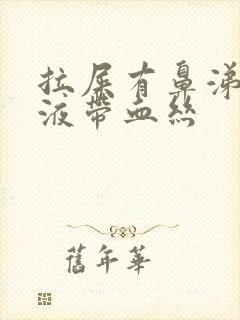 拉屎有鼻涕
液带血丝
舊年華